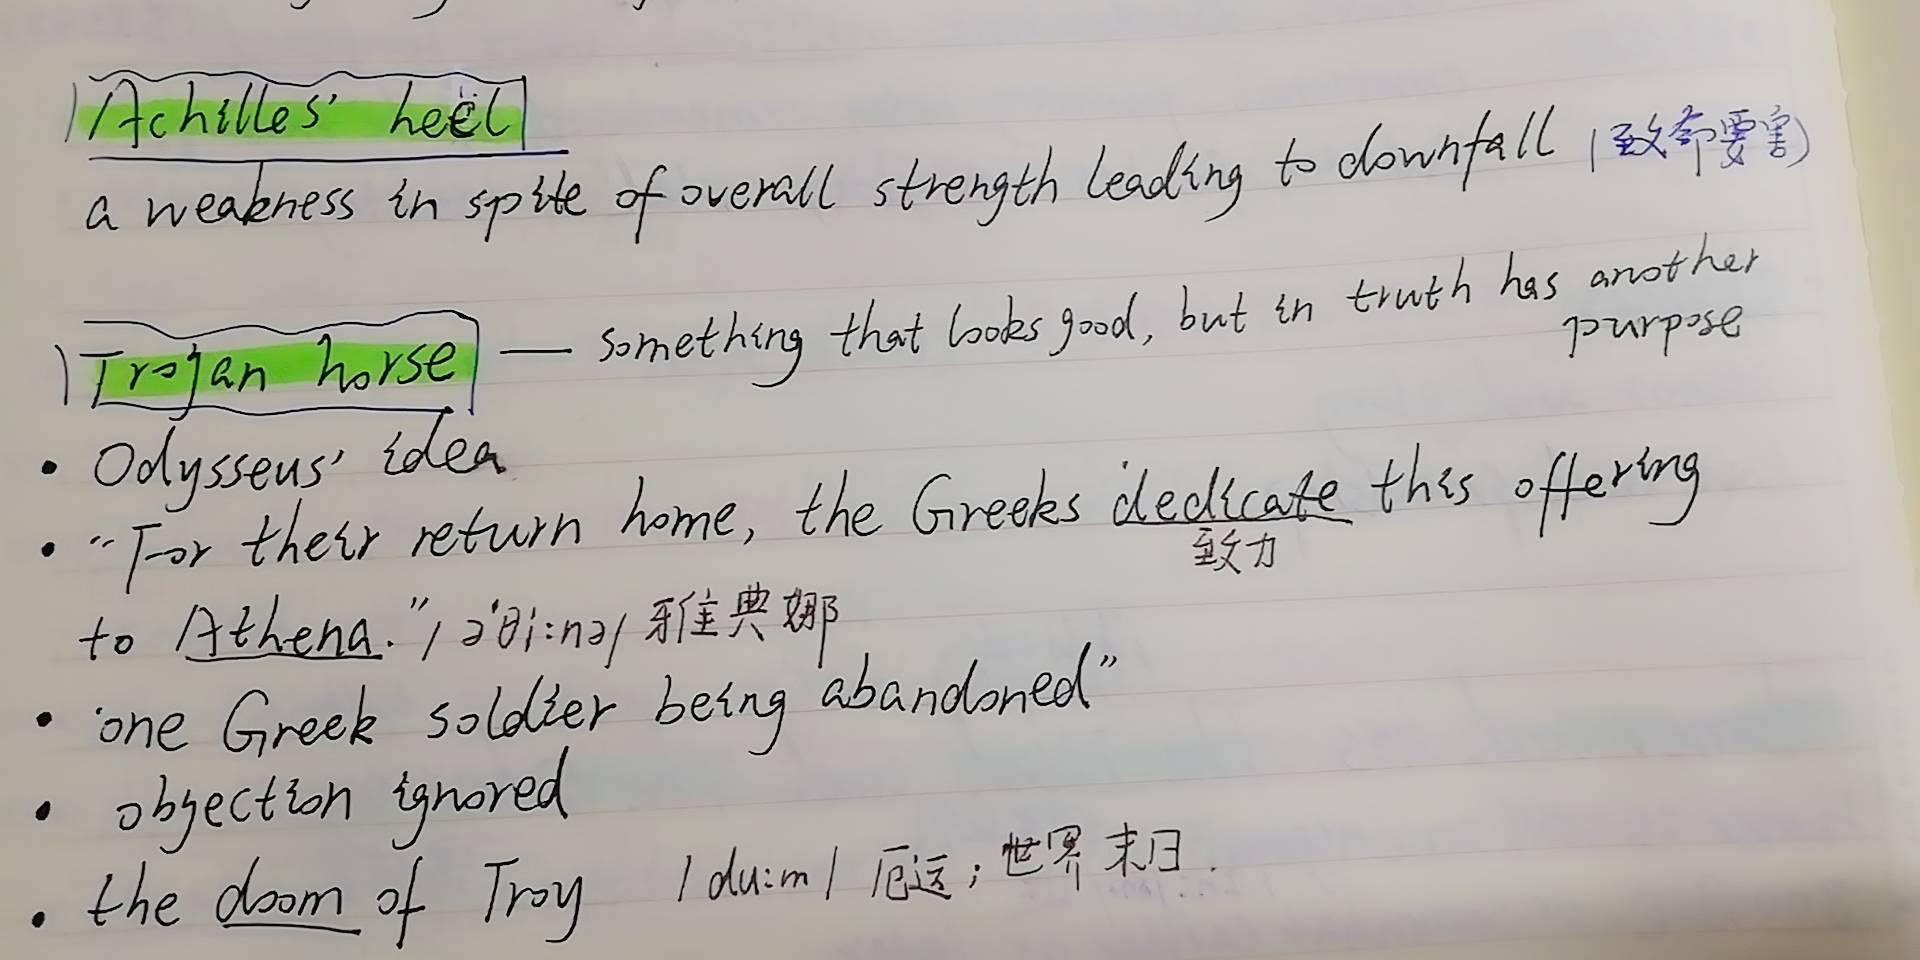 Achilles' heel
a weakness in spite of overall strength leading to downfall (致命要害)
Trojan horse — something that looks good, but in truth has another
purpose
• Odysseus' idea
• "For their return home, the Greeks dedicate this offering
致力
to Athena." /ə'θi:nə/ 雅典娜
• 'one Greek soldier being abandoned"
• objection ignored
• the doom of Troy /du:m/ 厄运; 世界末日.